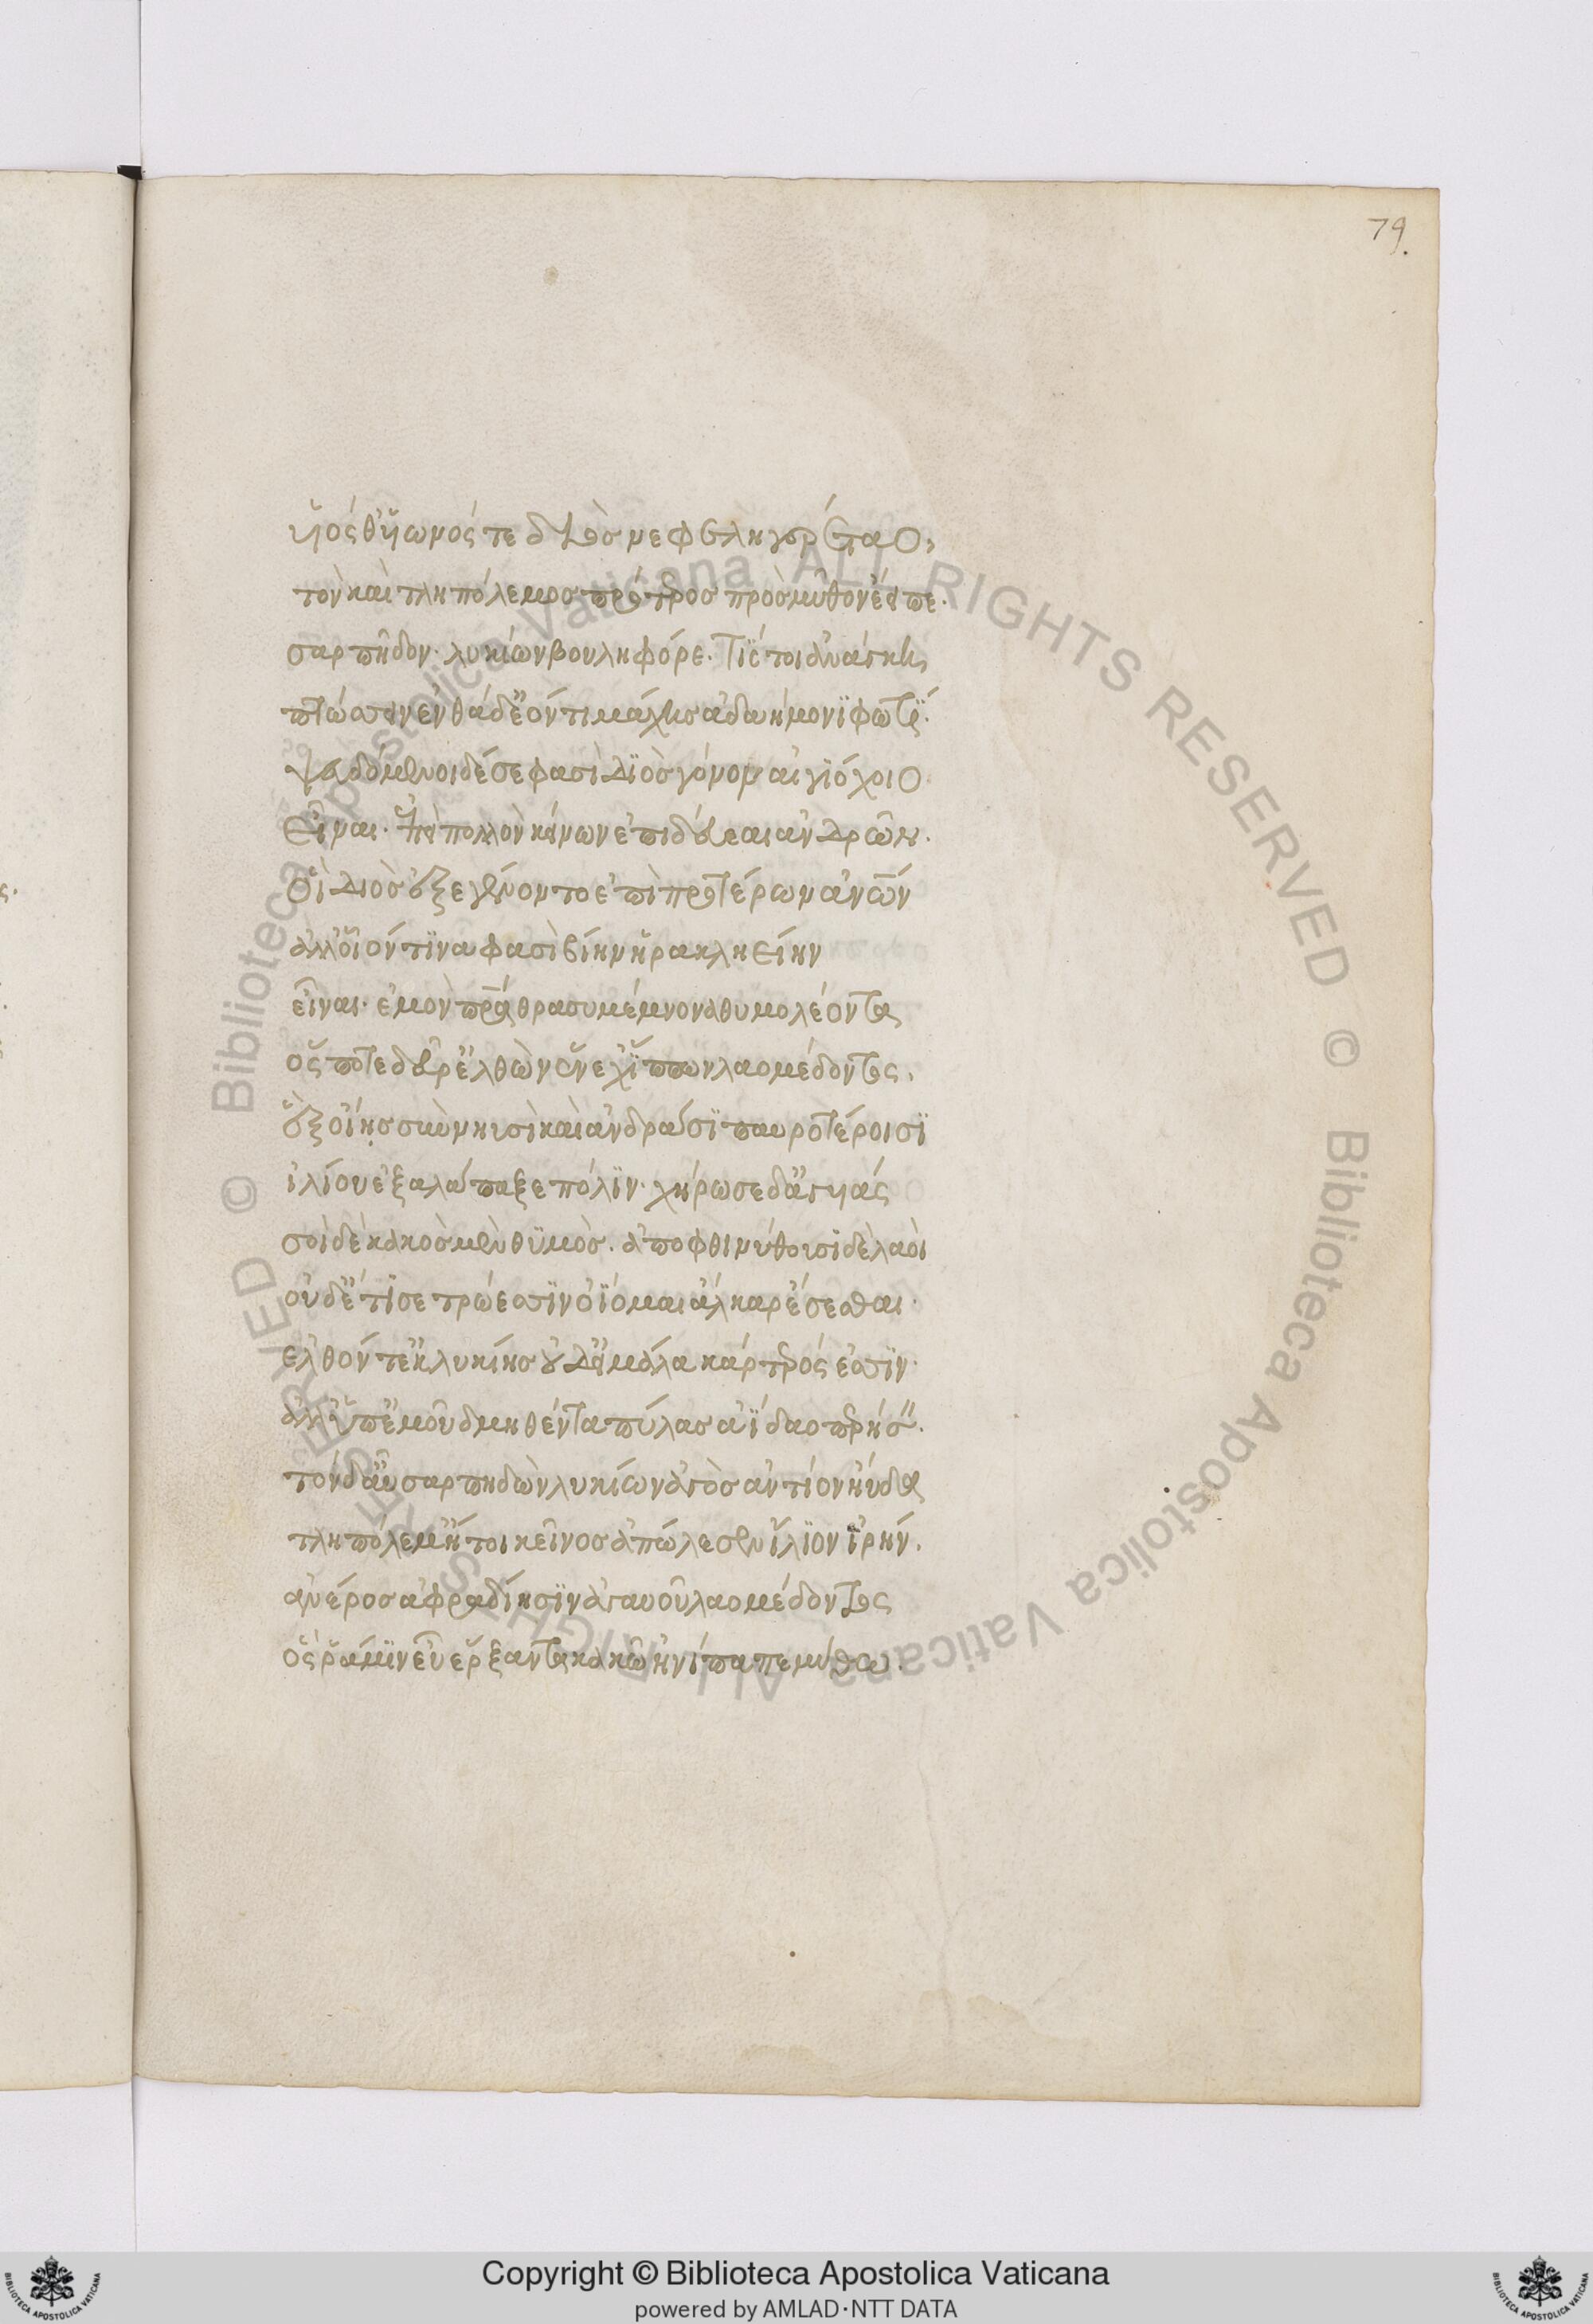 79.
υἱός θ' υἱωνός τε διὸς νεφεληγερέταο,
τὸν καὶ τληπόλεμος πρότερος πρὸς μῦθον ἔειπε.
σαρπῆδον. λυκίων βουληφόρε. τίς τοι ἀνάγκη,
πτώσσειν ἐνθάδ' ἐόντι μάχης ἀδαήμονϊ φωτΐ.
ψευδόμενοι δέ σε φασὶ Διὸς γόνον αἰγϊόχοιο
εἶναι. ἐπεὶ πολλὸν κείνων ἐπιδεύεαι ἀνδρῶν.
οἳ Διὸς ἐξεγένοντο ἐπὶ προτέρων ἀνων
ἀλλ' οἷόν τϊνα φασὶ βίην ἡρακληείην
εἶναι. ἐμὸν πρα θρασυμέμνονα θυμολέοντα
ὅς ποτε δεῦρ' ἐλθὼν ἕνεχ' ἵππων λαομέδοντος.
ἓξ οἴης σὺν νηυσὶ καὶ ἀνδράσϊ παυροτέροισϊ
ἰλίου ἐξαλάπαξε πόλϊν. χήρωσε δ' ἀγυιάς
σοὶ δὲ κακὸς μὲν θϋμὸς. ἀποφθινύθουσϊ δὲ λαὸι
οὐδέ τΐ σε τρώεσσϊν ὀΐομαι ἄλκαρ ἔσεσθαι.
ἐλθόντ' ἐκ λυκίης οὐδ' εἰ μάλα κάρτερός ἐσσϊν.
ἀλλ' ὑπ' ἐμοῦ δμηθέντα πύλας ἀΐδαο περήσ.
τὸν δ' αὖ σαρπηδὼν λυκίων ἀγὸς ἀντίον ηὔδα
τληπόλεμ' ἤτοι κεῖνος ἀπώλεσεν ἴλϊον ἱρήν.
ἀνέρος ἀφραδίησϊν ἀγαυοῦ λαομέδοντος
ὅς ῥά μϊν εὖ ἔρξαντα κακῶ ἠνίπαπε μύθω.
Copyright © Biblioteca Apostolica Vaticana
powered by AMLAD·NTT DATA